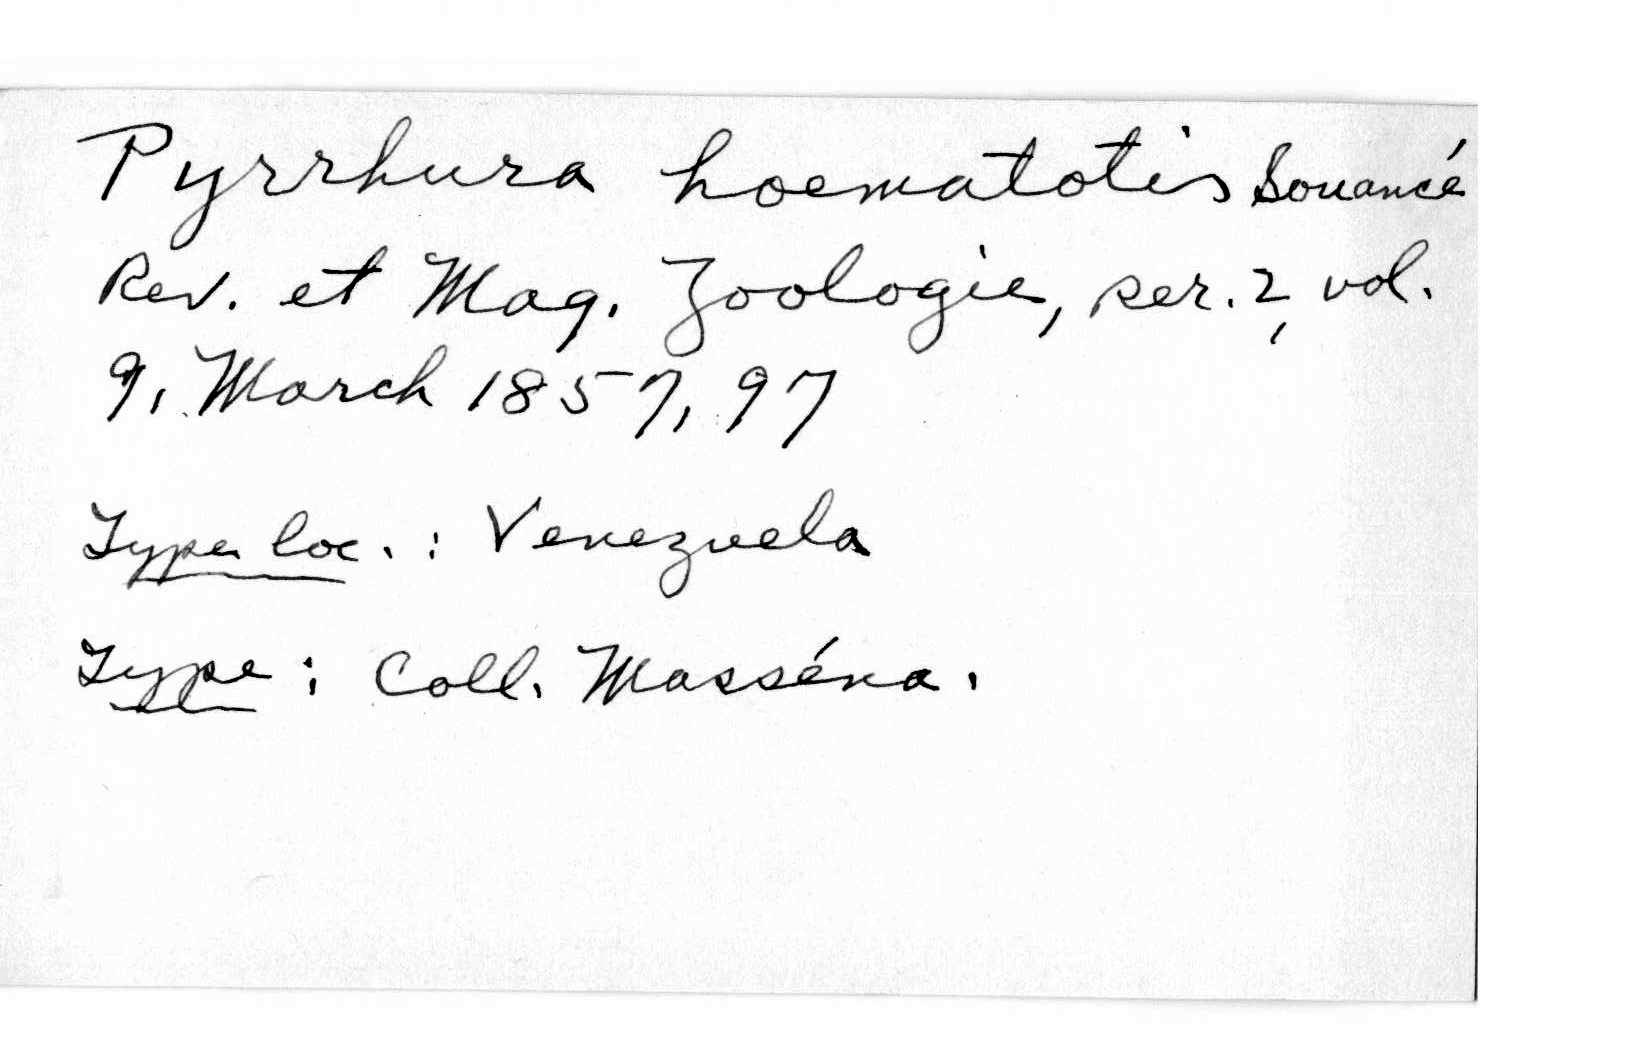 Pyrrhura hoematotis Souancé
Rev. et Mag. Zoologie, ser. 2, vol.
9, March 1857, 97
Type loc. : Venezuela
Type : Coll. Masséna.